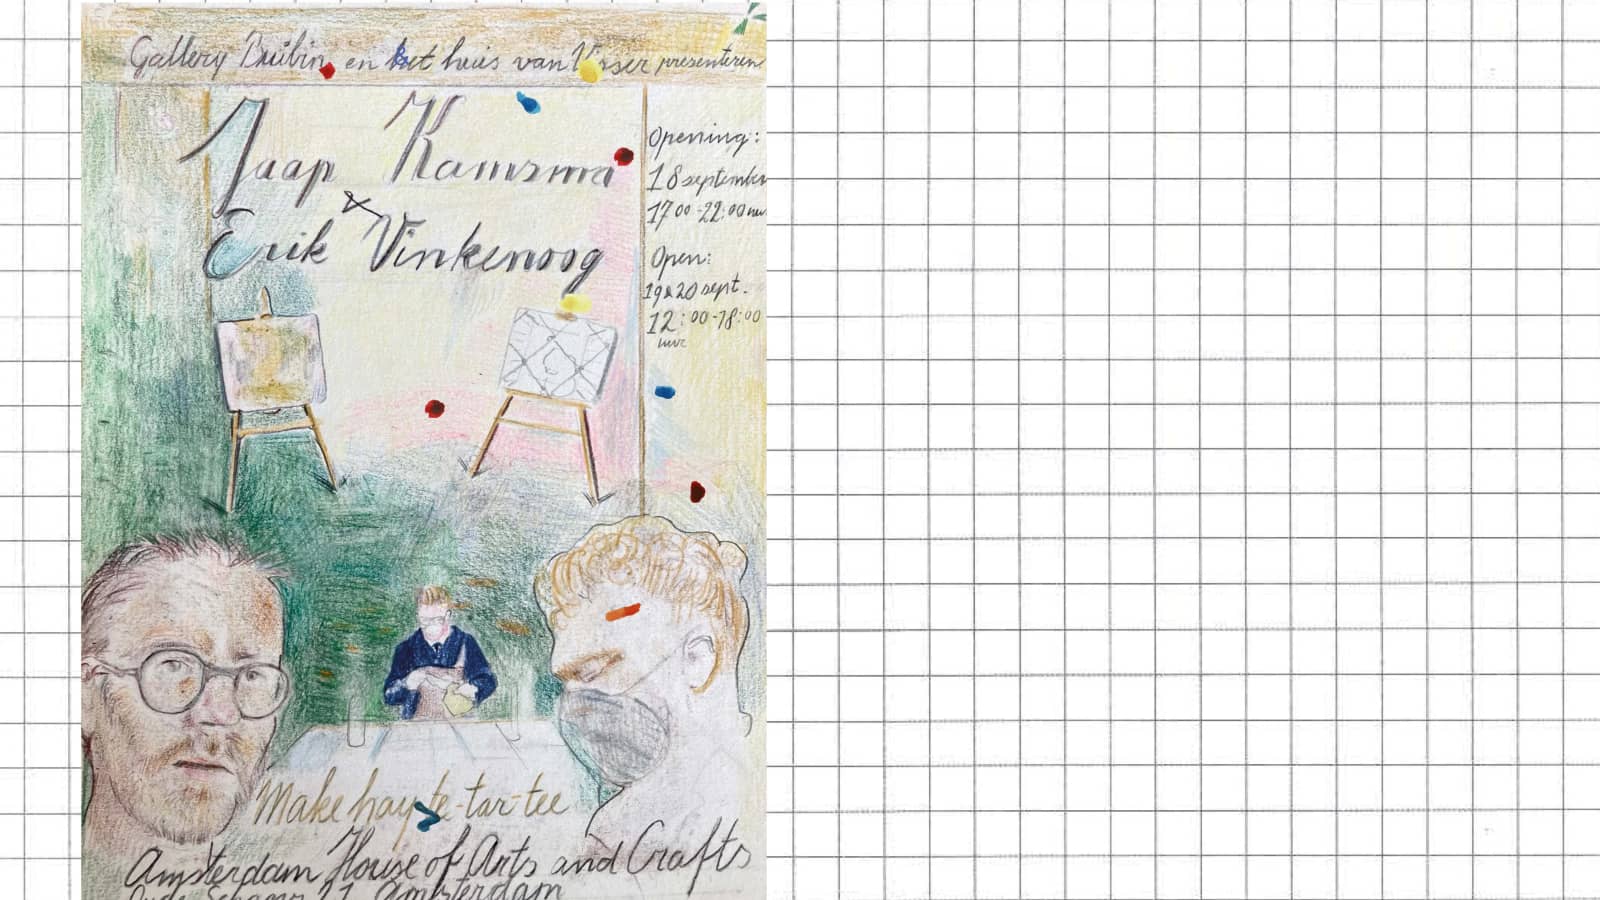 Gallery Bruibin en het huis van Visser presenteren
Jaap Kamsma
&
Erik Vinkenoog
Opening:
18 september
17 00 - 22:00 uur
Open:
19 & 20 sept.
12:00 - 18:00
uur
Make hay te-tar-tee
Amsterdam House of Arts and Crafts
Oude Schans 21 Amsterdam